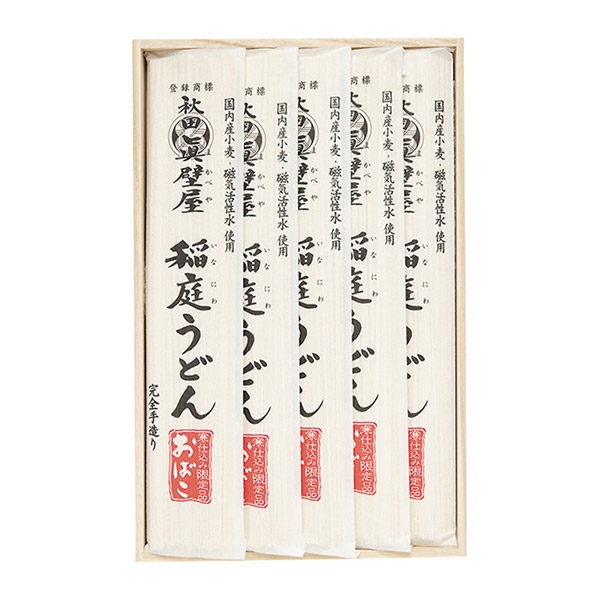 登録商標
国内産小麦・磁気活性水 使用
秋田眞壁屋
まかべや
稲庭うどん
いなにわ
完全手造り
寒仕込み限定品
おばこ
商標
国内産小麦・磁気活性水 使用
田眞壁屋
かべや
稲庭うどん
いなにわ
寒仕込み限定品
商標
国内産小麦・磁気活性水 使用
眞壁屋
かべや
庭うどん
いなにわ
仕込み限定品
商標
国内産小麦・磁気活性水 使用
眞壁屋
かべや
庭うどん
いなにわ
仕込み限定品
商標
国内産小麦・磁気活性水 使用
眞壁屋
かべや
稲庭うどん
いなにわ
仕込み限定品